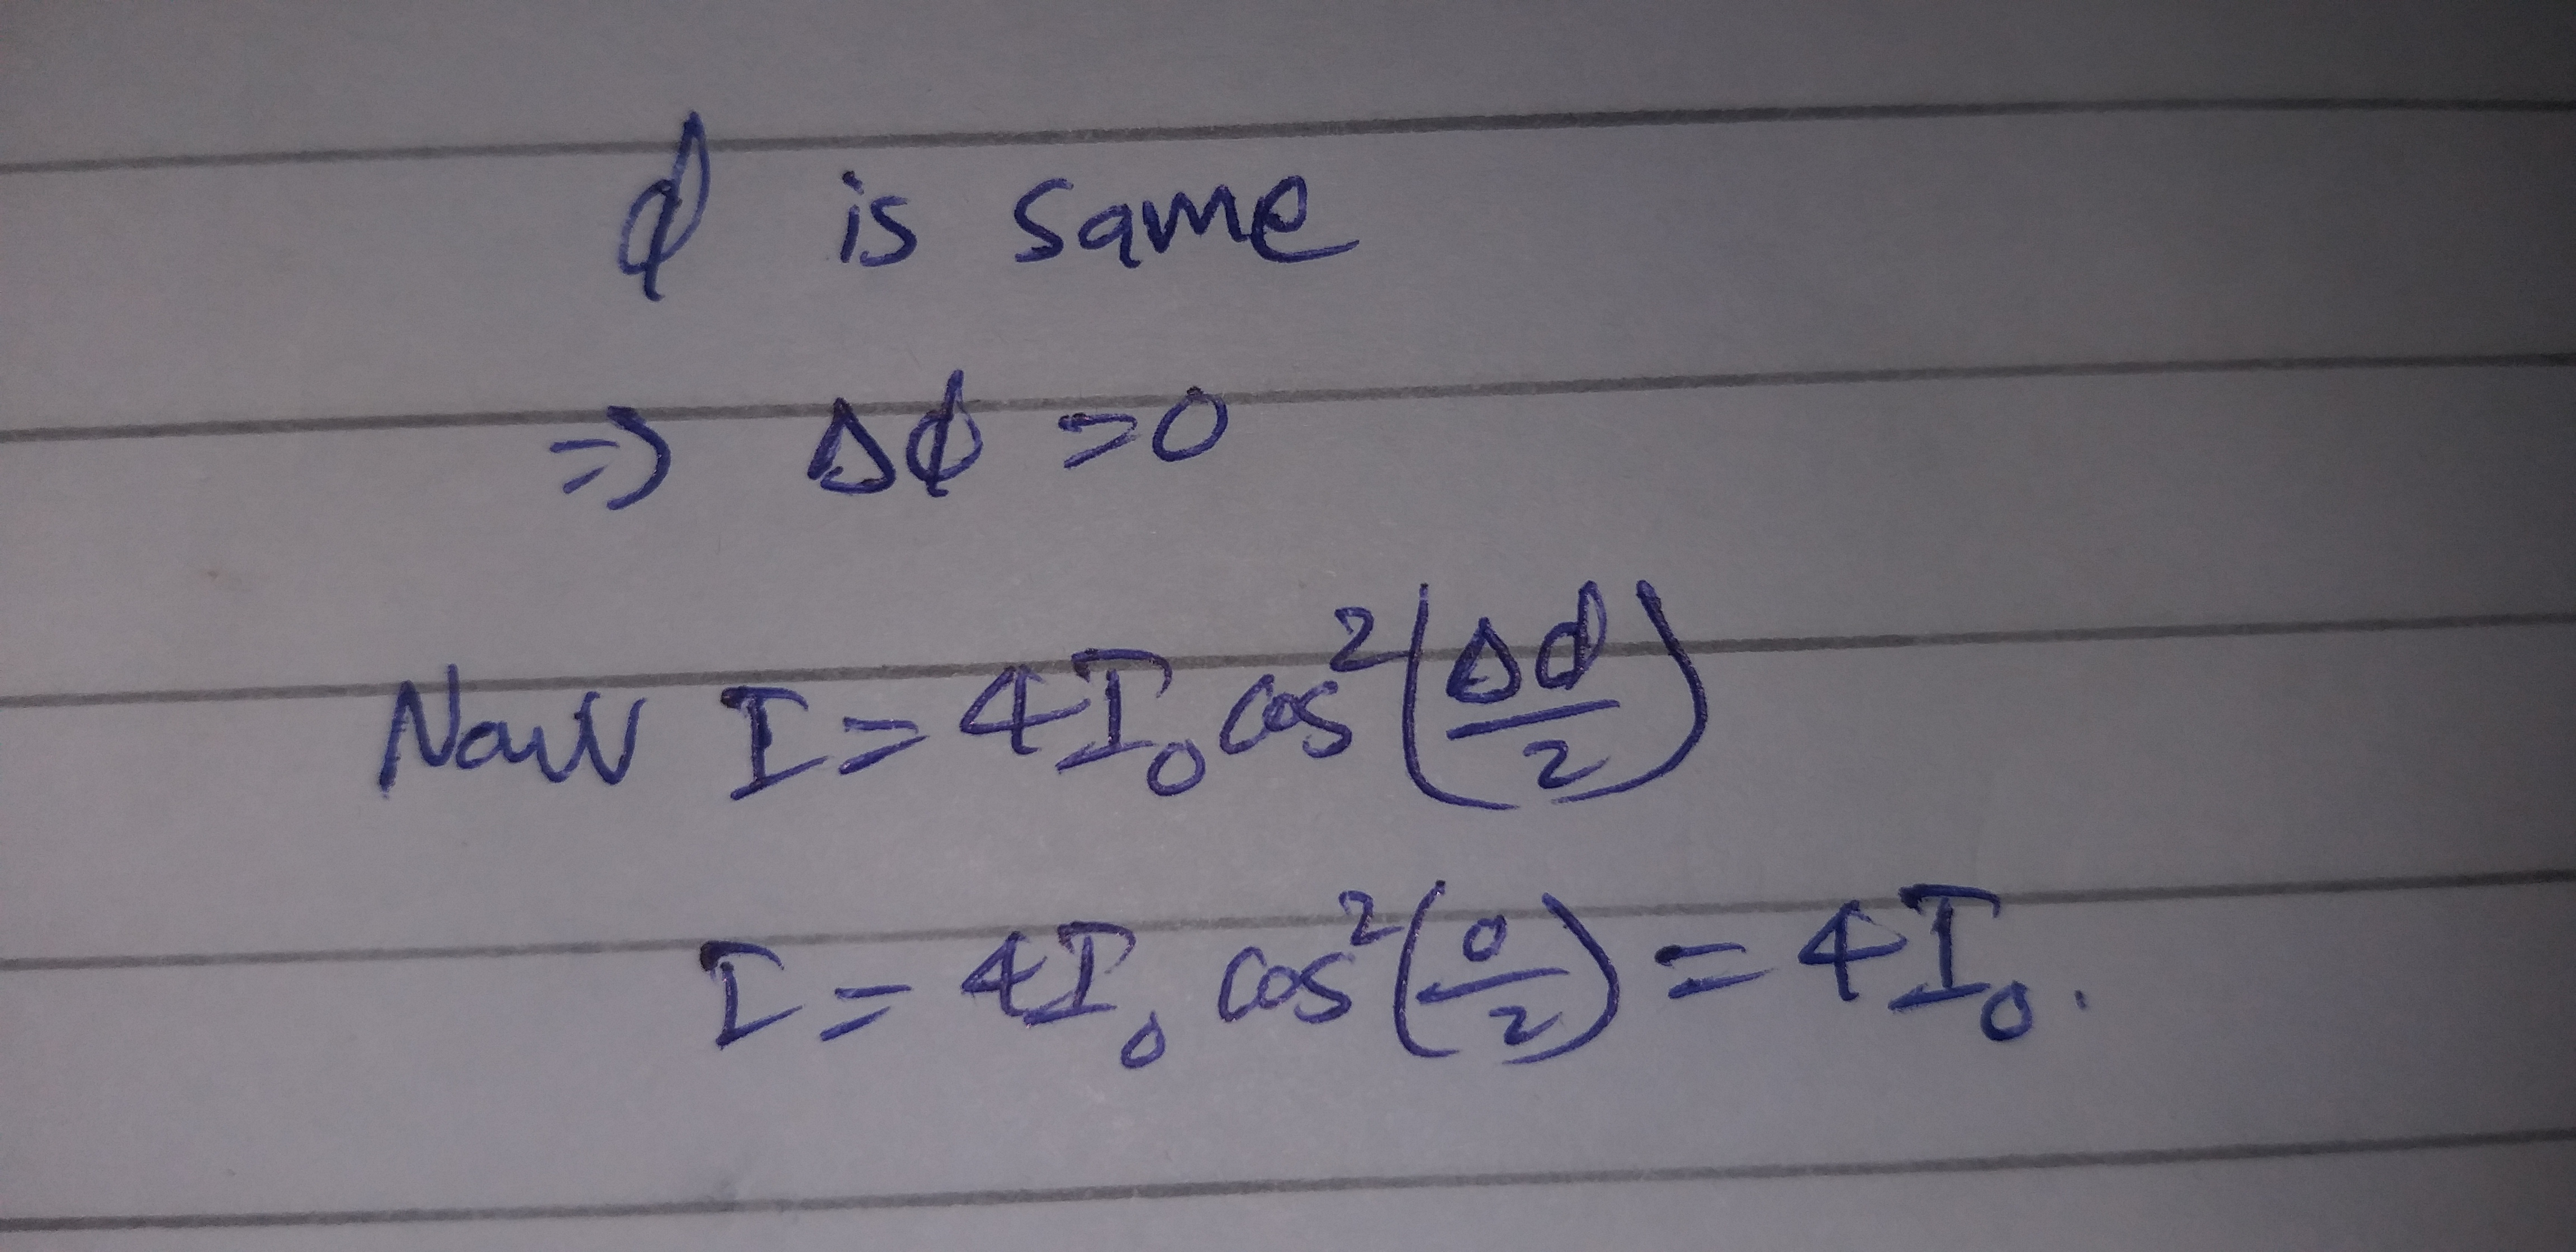 ϕ is same
⇒ Δϕ = 0
Now I = 4I₀ cos²(Δϕ/2)
I = 4I₀ cos²(0/2) = 4I₀.